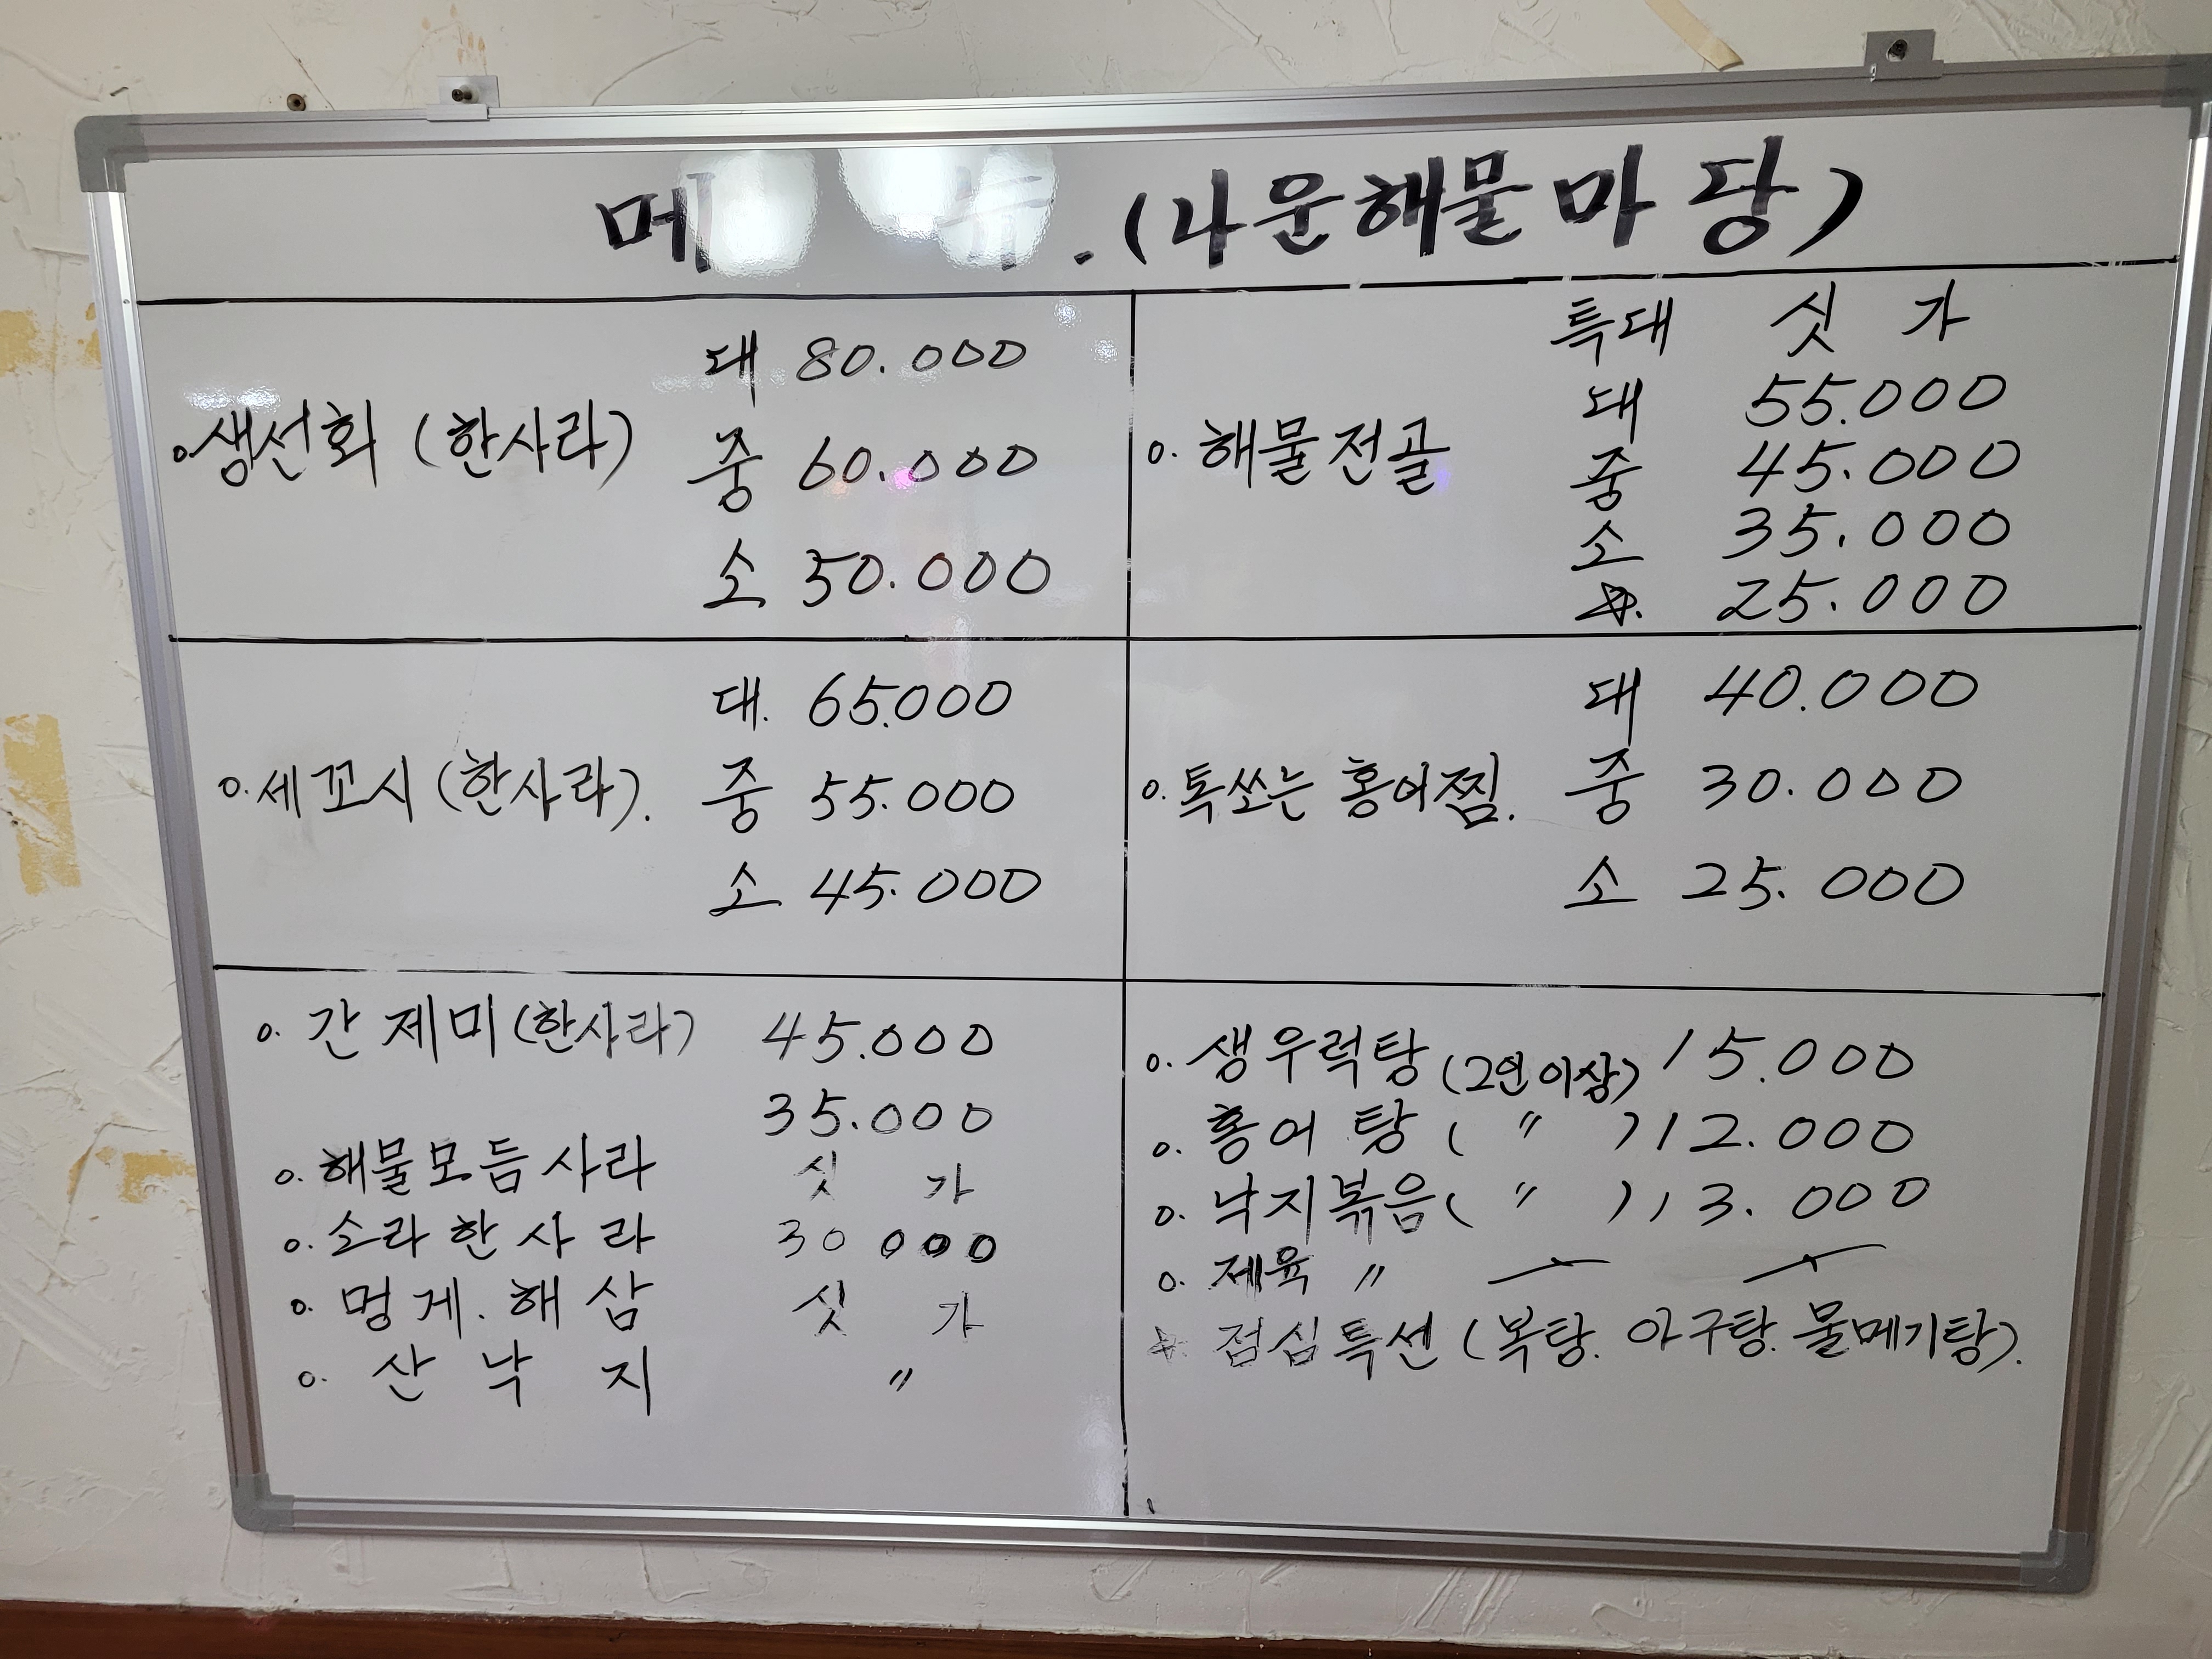 메뉴.(나운해물마당)
대 80.000
o.생선회 (한사라) 중 60.000
소 50.000
특대 싯가
대 55.000
o. 해물전골 중 45.000
소 35.000
☆. 25.000
대. 65.000
o.세꼬시(한사라). 중 55.000
소 45.000
대 40.000
o.톡쏘는 홍어찜. 중 30.000
소 25.000
o. 간제미(한사라) 45.000
35.000
o. 해물모듬사라 싯가
o. 소라한사라 30 000
o. 멍게.해삼 싯가
o. 산낙지 〃
o. 생우럭탕(2인이상) 15.000
o. 홍어탕( 〃 )12.000
o. 낙지볶음( 〃 )13.000
o. 제육 〃
☆ 점심특선(복탕. 아구탕. 물메기탕).